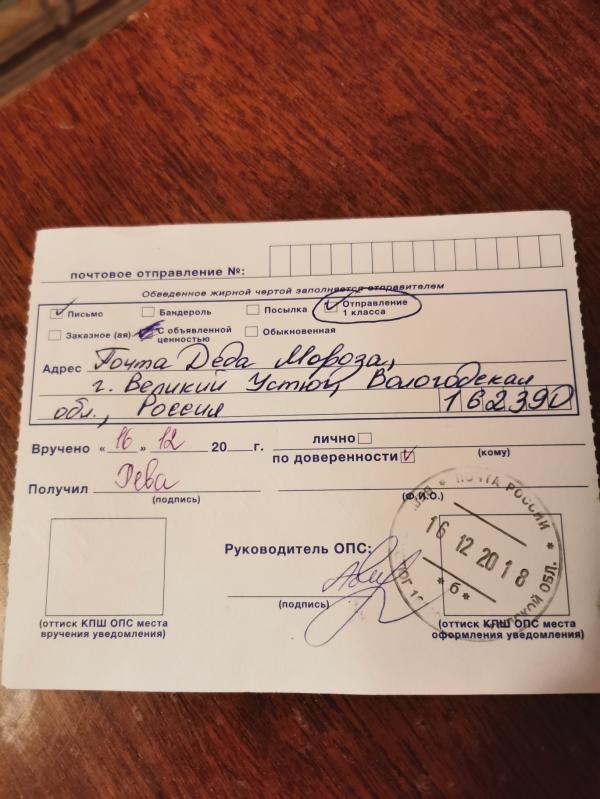 почтовое отправление №:
Обведенное жирной чертой заполняется отправителем
Письмо Бандероль Посылка Отправление 1 класса
Заказное (ая) С объявленной ценностью Обыкновенная
Адрес Почта Деда Мороза,
г. Великий Устюг, Вологодская
обл., Россия 162390
Вручено «16» 12 20 г. лично
по доверенности (кому)
Получил Дева
(подпись) (Ф.И.О.)
ПОЧТА РОССИИ
16 12 20 18
*б*
Руководитель ОПС:
(подпись)
(оттиск КПШ ОПС места вручения уведомления)
(оттиск КПШ ОПС места оформления уведомления)